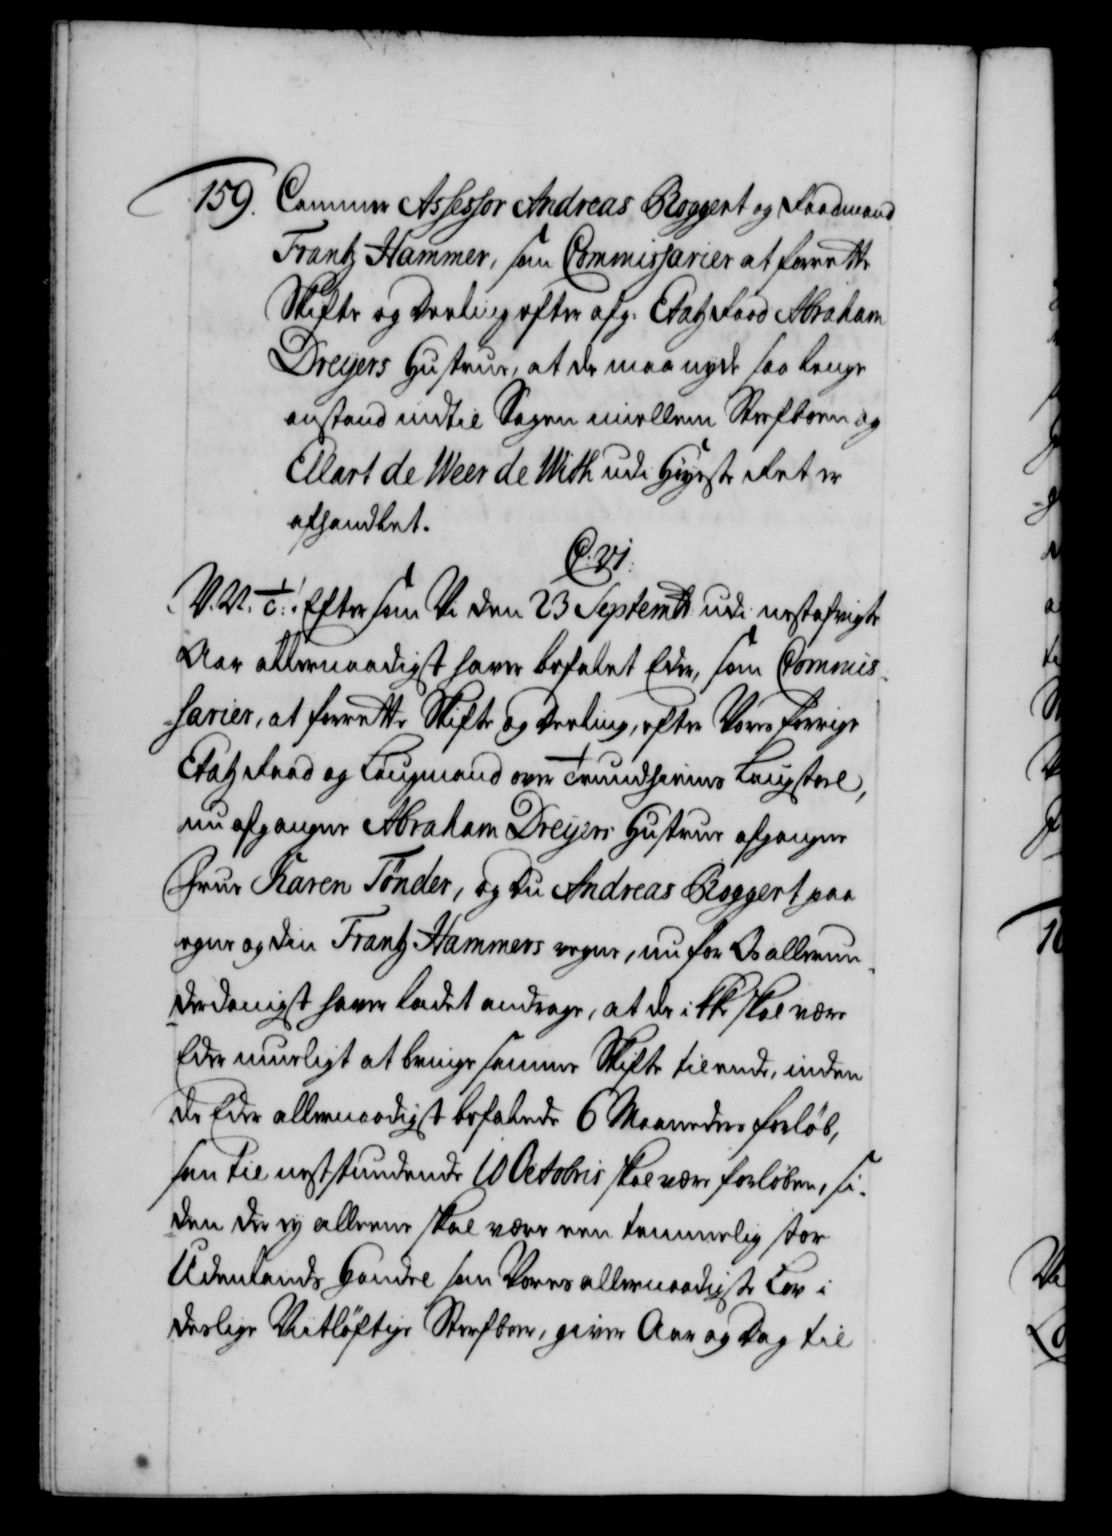 159. Cammer Assessor Andreas Roggert og Raadmand
Frantz Hammer, som Commissarier at forrette
Skifte og Deeling efter afg. Etatz Raad Abraham
Dreyers Hustrue, at de maa nyde saa lenge
anstand indtil Sagen mellem Sterfboen og
Ellart de Weer de With udi Høyeste Ret er
afhandlet.
C. VI.
V. V. C: Efter som Vi den 23 Septembr udi nestafvigte
Aar allernaadigst haver befalet Eder, som Commis-
sarier, at forrette Skifte og Deeling, efter Vores forrige
Etatz Raad og Laugmand over Trundhiems Laugstoel,
nu afgangne Abraham Dreyers Hustrue afgangne
Frue Karen Tönder, og Du Andreas Roggert paa
egne og din Frantz Hammers vegne, nu for Os allerun-
derdanigst haver ladet andrage, at de ikke skal være
Eder mueligt at bringe samme Skifte til ende, inden
de Eder allernaadigst befalede 6 Maaneders forløb,
som til neststundende 10 Octobris skal være forløben, si-
den der ej alleene skal være een temmelig stor
Udenlands Handel som Vores allernaadigste Lov i
deslige Vitløftige Sterfboer, giver Aar og Dag til